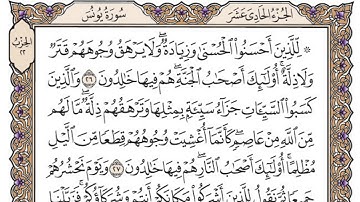 الجزء الحادي عشر
سورة يونس
الحزب ٢٢
۞ لِّلَّذِينَ أَحْسَنُوا۟ ٱلْحُسْنَىٰ وَزِيَادَةٌ ۖ وَلَا يَرْهَقُ وُجُوهَهُمْ قَتَرٌ
وَلَا ذِلَّةٌ ۚ أُو۟لَٰٓئِكَ أَصْحَٰبُ ٱلْجَنَّةِ ۖ هُمْ فِيهَا خَٰلِدُونَ ٢٦ وَٱلَّذِينَ
كَسَبُوا۟ ٱلسَّيِّـَٔاتِ جَزَآءُ سَيِّئَةٍۭ بِمِثْلِهَا وَتَرْهَقُهُمْ ذِلَّةٌ ۖ مَّا لَهُم
مِّنَ ٱللَّهِ مِنْ عَاصِمٍ ۖ كَأَنَّمَآ أُغْشِيَتْ وُجُوهُهُمْ قِطَعًا مِّنَ ٱلَّيْلِ
مُظْلِمًا ۚ أُو۟لَٰٓئِكَ أَصْحَٰبُ ٱلنَّارِ ۖ هُمْ فِيهَا خَٰلِدُونَ ٢٧ وَيَوْمَ نَحْشُرُهُمْ
جَمِيعًا ثُمَّ نَقُولُ لِلَّذِينَ أَشْرَكُوا۟ مَكَانَكُمْ أَنتُمْ وَشُرَكَآؤُكُمْ ۚ فَزَيَّلْنَا